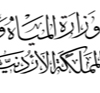 وزارة المياه و
المملكة الأردنية